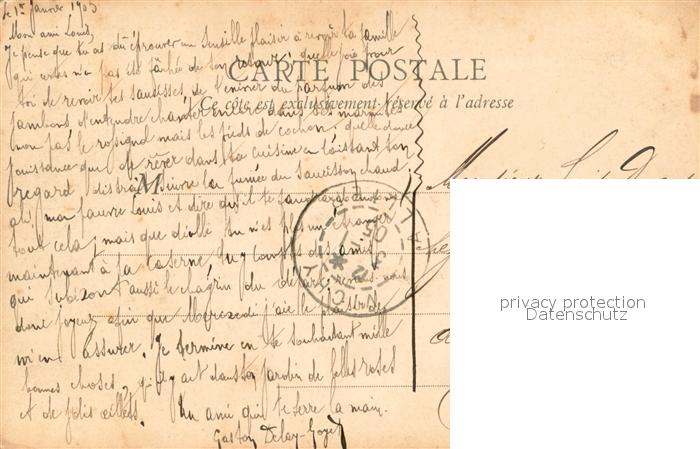 le 1er Janvier 1905
Mon ami Louis,
Je pense que tu as dû éprouver un sensible plaisir à revoir ta famille
qui certes n'a pas été fâchée de ton retour; quelle joie pour
toi de revoir tes saucisses, de t'enivrer du parfum des
CARTE POSTALE
Ce côté est exclusivement réservé à l'adresse
jambons d'entendre chanter encore dans marmite
non pas le rossignol mais les pieds de cochon, quelle douce
jouissance que de rêver dans ta cuisine en laissant ton
regard distrait suivre la fumée du saucisson chaud;
M
ah! mon pauvre Louis et dire qu'il te faudra
tout cela; mais que diable tu n'es plus un étranger
maintenant à la caserne tu y comptes des amis
qui aussi le chagrin du départ, nous
donc joyeux afin que Mercredi j'aie le plaisir de
m'en assurer. Je termine en te souhaitant mille
bonnes choses, qu'il y ait dans ton jardin de belles roses
et de jolis œillets. Un ami qui te serre la main.
Gaston Delay-Goyet
Monsieur
privacy protection
Datenschutz